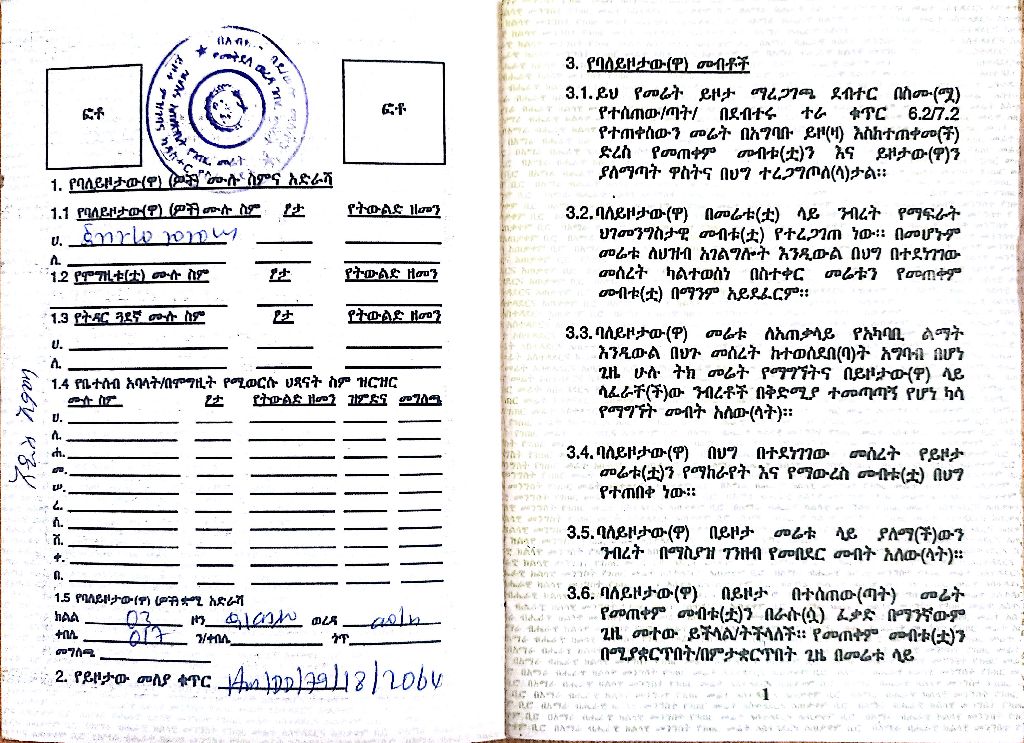 ፎቶ
ፎቶ
1. የባለይዞታው(ዋ) (ዎች) ሙሉ ስምና አድራሻ
1.1 የባለይዞታው(ዋ) (ዎች) ሙሉ ስም ፆታ የትውልድ ዘመን
ሀ.
ለ.
1.2 የሞግዚቱ(ቷ) ሙሉ ስም ፆታ የትውልድ ዘመን
1.3 የትዳር ጓደኛ ሙሉ ስም ፆታ የትውልድ ዘመን
ሀ.
ለ.
1.4 የቤተሰብ አባላት/በሞግዚት የሚወርሱ ህጻናት ስም ዝርዝር
ሙሉ ስም ፆታ የትውልድ ዘመን ዝምድና መግለጫ
ሀ.
ለ.
ሐ.
መ.
ሠ.
ረ.
ሰ.
ሸ.
ቀ.
በ.
1.5 የባለይዞታው(ዋ) (ዎች) ቋሚ አድራሻ
ክልል 03 ዞን ወረዳ
ቀበሌ 017 ን/ቀበሌ ጎጥ
መግለጫ
2. የይዞታው መለያ ቁጥር
3. የባለይዞታው(ዋ) መብቶች
3.1. ይህ የመሬት ይዞታ ማረጋገጫ ደብተር በስሙ(ሟ)
የተሰጠው/ጣት/ በደብተሩ ተራ ቁጥር 6.2/7.2
የተጠቀሰውን መሬት በአግባቡ ይዞ(ዛ) እስከተጠቀመ(ች)
ድረስ የመጠቀም መብቱ(ቷ)ን እና ይዞታው(ዋ)ን
ያለማጣት ዋስትና በህግ ተረጋግጦለ(ላ)ታል።
3.2. ባለይዞታው(ዋ) በመሬቱ(ቷ) ላይ ንብረት የማፍራት
ህገመንግስታዊ መብቱ(ቷ) የተረጋገጠ ነው። በመሆኑም
መሬቱ ለህዝብ አገልግሎት እንዲውል በህግ በተደነገገው
መሰረት ካልተወሰነ በስተቀር መሬቱን የመጠቀም
መብቱ(ቷ) በማንም አይደፈርም።
3.3. ባለይዞታው(ዋ) መሬቱ ለአጠቃላይ የአካባቢ ልማት
እንዲውል በህጉ መሰረት ከተወሰደበ(ባ)ት አግባብ በሆነ
ጊዜ ሁሉ ትክ መሬት የማግኘትና በይዞታው(ዋ) ላይ
ላፈራቸ(ች)ው ንብረቶች በቅድሚያ ተመጣጣኝ የሆነ ካሳ
የማግኘት መብት አለው(ላት)።
3.4. ባለይዞታው(ዋ) በህግ በተደነገገው መሰረት የይዞታ
መሬቱ(ቷ)ን የማከራየት እና የማውረስ መብቱ(ቷ) በህግ
የተጠበቀ ነው።
3.5. ባለይዞታው(ዋ) በይዞታ መሬቱ ላይ ያለማ(ች)ውን
ንብረት በማስያዝ ገንዘብ የመበደር መብት አለው(ላት)።
3.6. ባለይዞታው(ዋ) በይዞታ በተሰጠው(ጣት) መሬት
የመጠቀም መብቱ(ቷ)ን በራሱ(ሷ) ፈቃድ በማንኛውም
ጊዜ መተው ይችላል/ትችላለች። የመጠቀም መብቱ(ቷ)ን
በሚያቋርጥበት/በምታቋርጥበት ጊዜ በመሬቱ ላይ
1